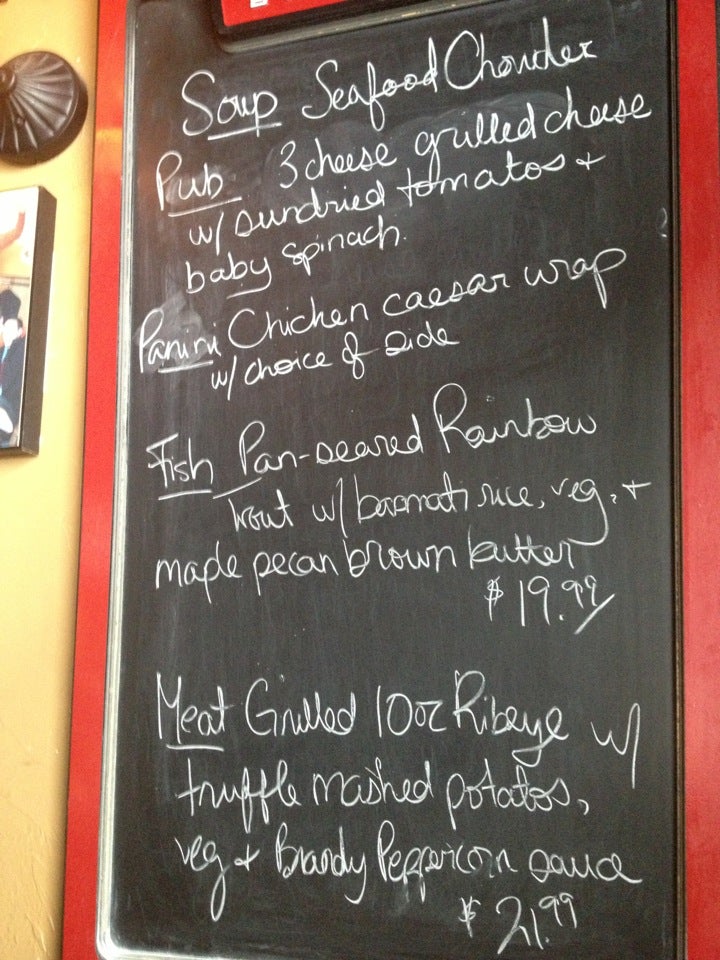 Soup Seafood Chowder
Pub 3 cheese grilled cheese
w/ sundried tomatos +
baby spinach.
Panini Chicken caesar wrap
w/ choice of side
Fish Pan-seared Rainbow
trout w/ basmati rice, veg, +
maple pecan brown butter
$19.99
Meat Grilled 10oz Ribeye w/
truffle mashed potatos,
veg + Brandy Peppercorn sauce
$21.99